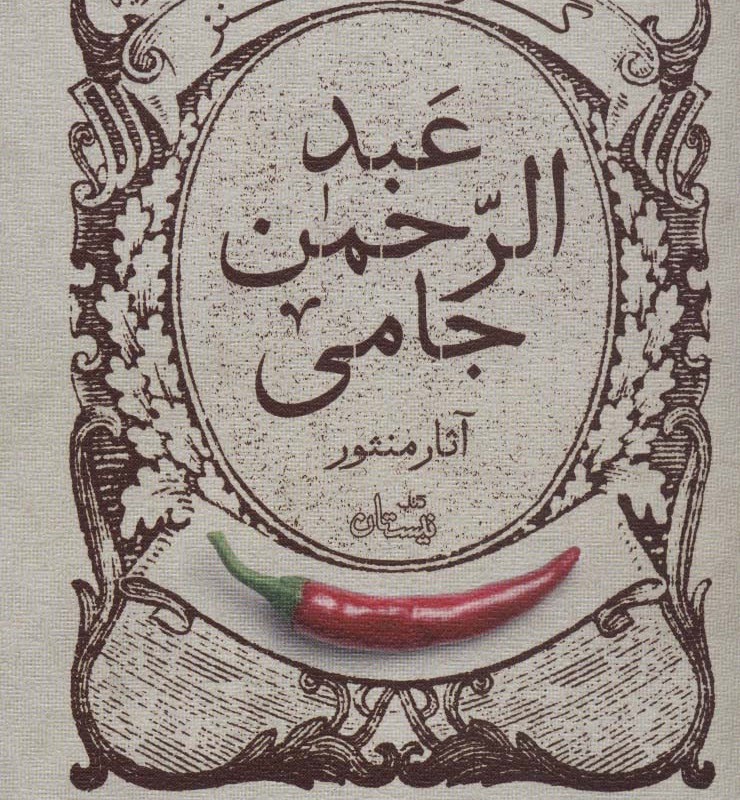 عَبد
الرّحمٰن
جامی
آثار منثور
کتاب
نیستان